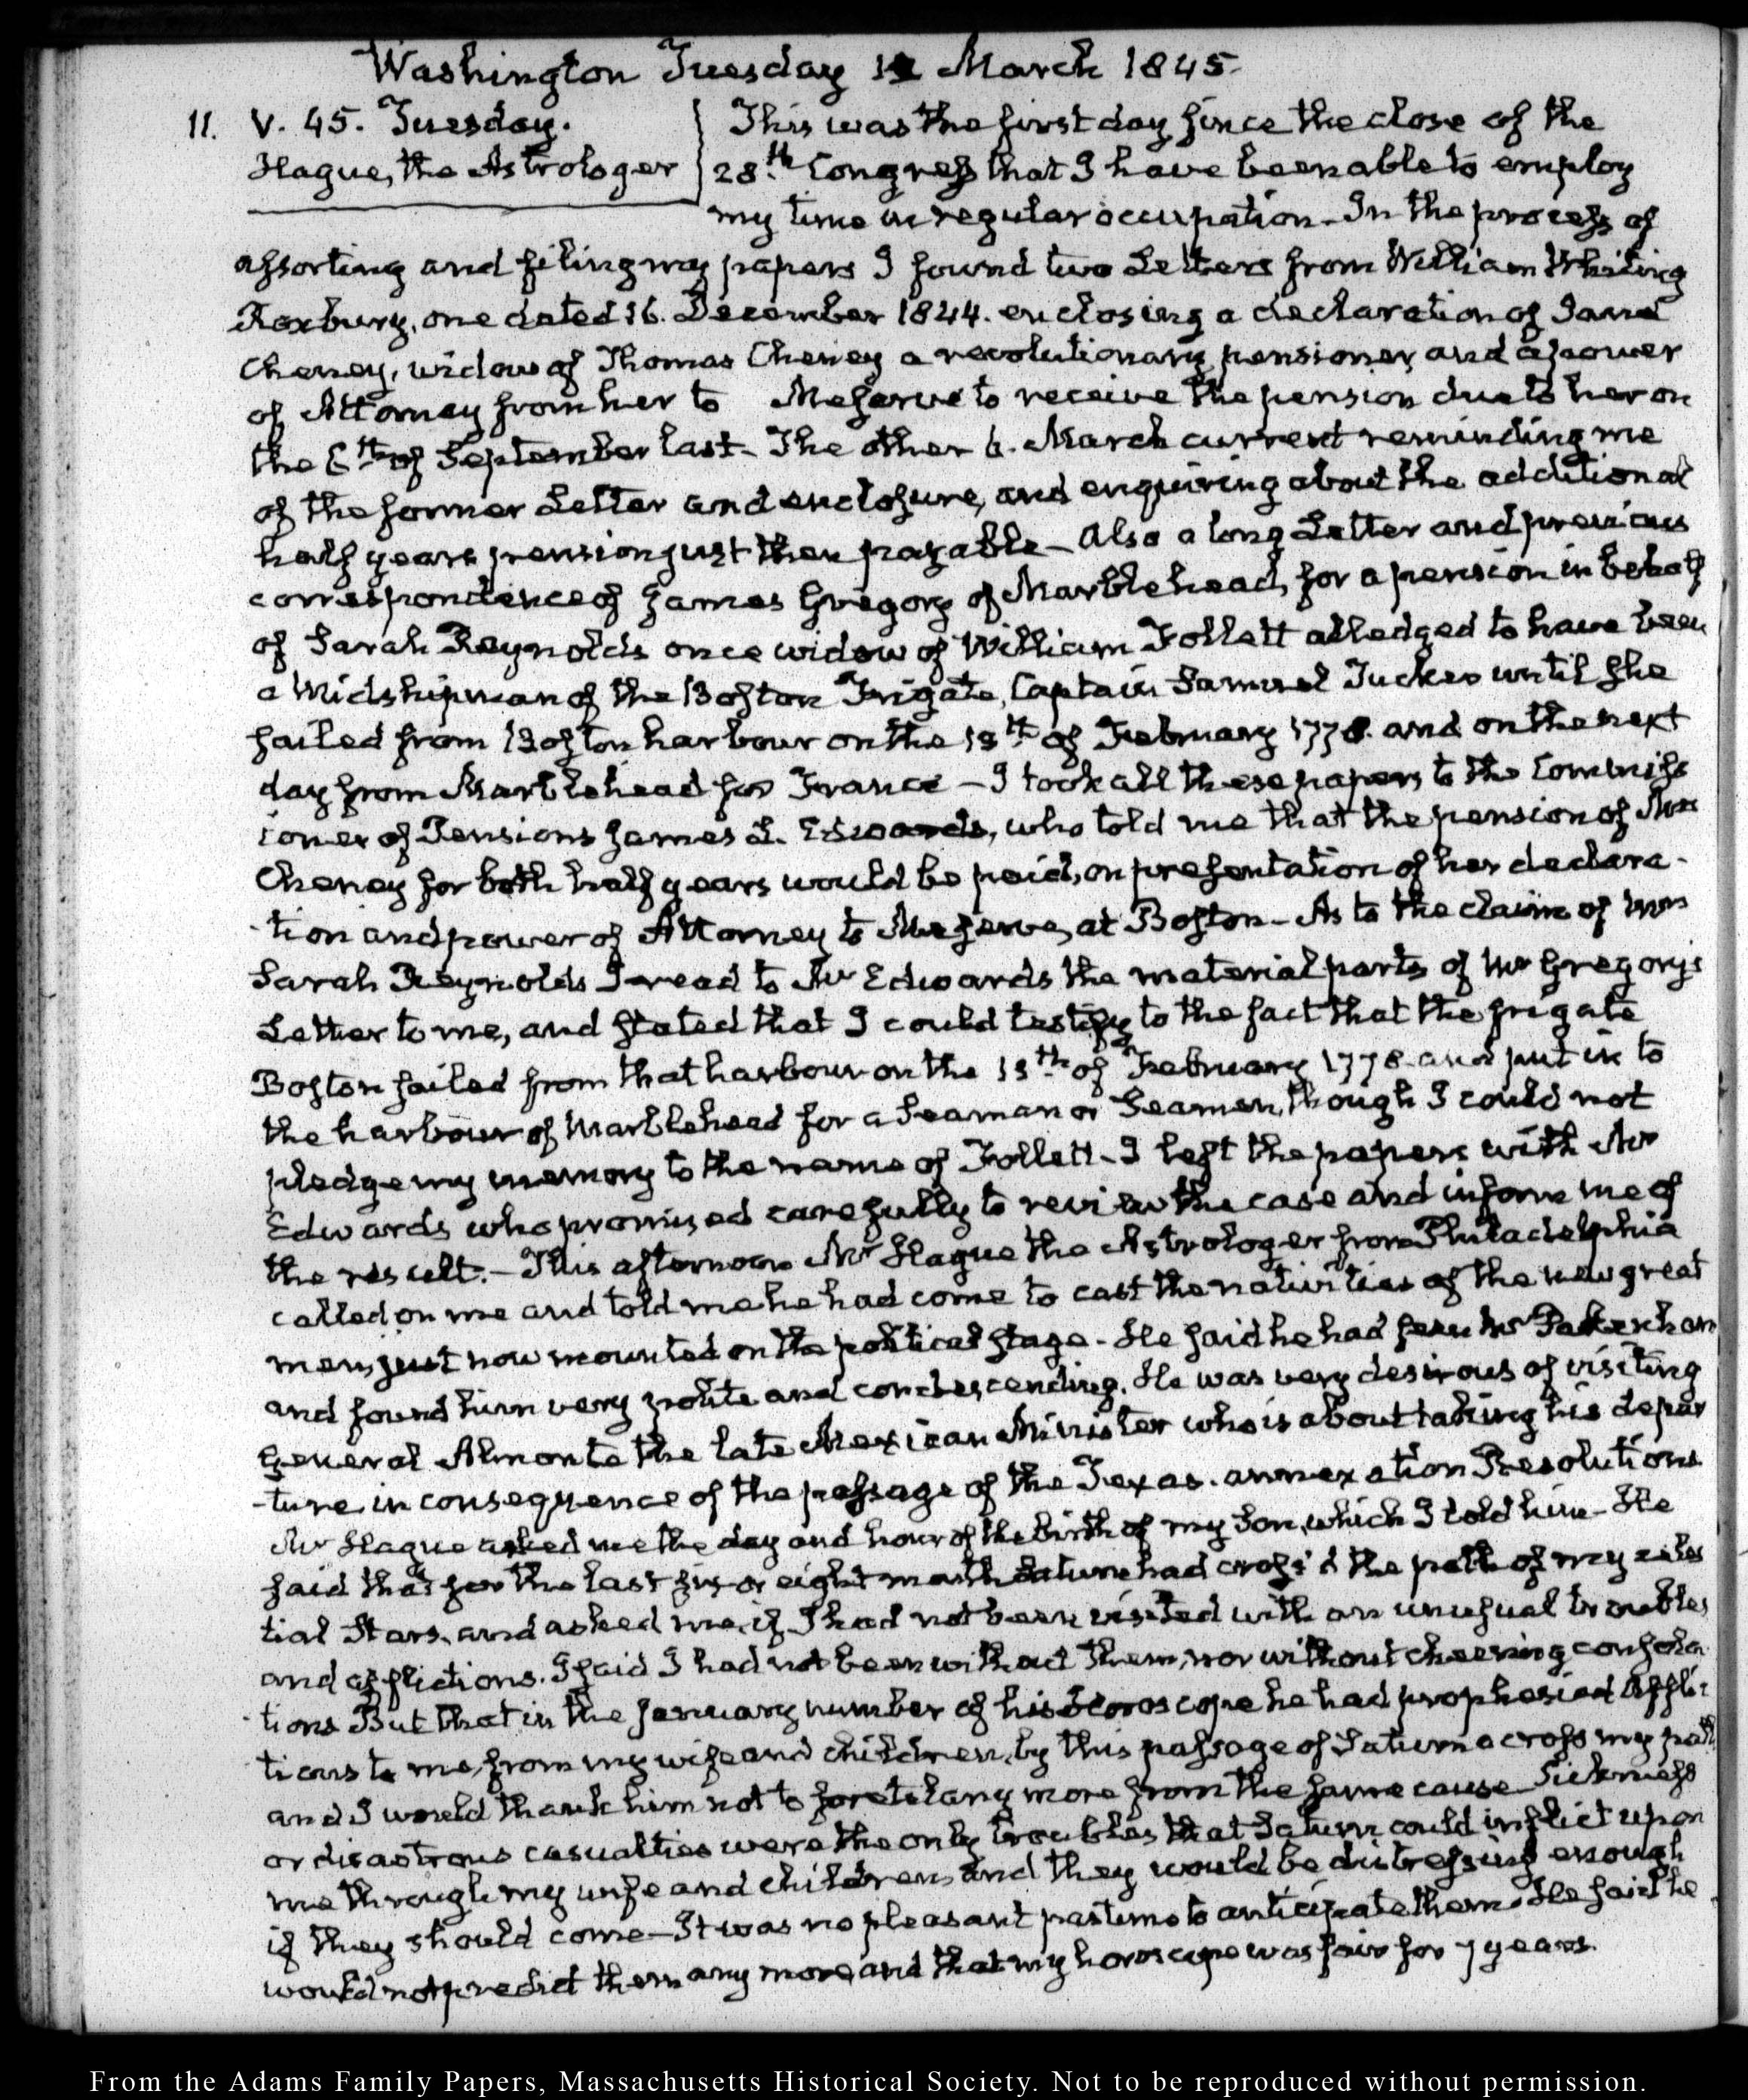 Washington Tuesday 11 March 1845.
11. V. 45. Tuesday.
Hague, the Astrologer
This was the first day since the close of the
28th Congress that I have been able to employ
my time in regular occupation. In the process of
assorting and filing my papers I found two Letters from William Whiting
Roxbury, one dated 16. December 1844. enclosing a declaration of
Cheney, widow of Thomas Cheney a revolutionary pensioner, and a power
of Attorney from her to Meserve to receive the pension due to her on
the of September last. The other 6. March current reminding me
of the former Letter and enclosure, and enquiring about the additional
half years pension just then payable— Also a long Letter and previous
correspondence of James Gregory of Marblehead, for a pension in behalf
of Sarah Reynolds once widow of William Follett alledged to have been
a Midshipman of the Boston Frigate, Captain Samuel Tucker until she
sailed from Boston harbour on the of February 1778. and on the next
day from Marblehead for France — I took all these papers to the Commiss
ioner of Pensions James L. Edwards, who told me that the pension of Mrs
Cheney for both half years would be paid, on presentation of her declara-
-tion and power of Attorney to Meserve, at Boston— As to the claim of Mrs
Sarah Reynolds I read to Mr Edwards the material parts of Mr Gregory's
Letter to me, and stated that I could testify to the fact that the frigate
Boston sailed from that harbour on the of February 1778 and put in to
the harbour of Marblehead for a Seaman or Seamen, though I could not
pledge my memory to the name of Follett— I left the papers with Mr
Edwards who promised carefully to review the case and inform me of
the result.— This afternoon Mr Hague the Astrologer from Philadelphia
called on me and told me he had come to cast the nativities of the new great
men, just now mounted on the political stage— He said he had seen Mr Pakenham
and found him very polite and condescending. He was very desirous of visiting
General Almonte the late Mexican Minister who is about taking his depar
-ture in consequence of the passage of the Texas. annexation Resolutions
Mr Hague asked me the day and hour of the birth of my Son, which I told him— He
said that for the last six or eight month Saturn had cross'd the path of my celes
tial Stars, and asked me, if I had not been visited with an unusual troubles
and afflictions. I said I had not been without them, nor without cheering consola
-tions But that in the January number of his Horoscope he had prophesied Afflic
tions to me, from my wife and children, by this passage of Saturn across my path
and I would thank him not to foretel any more from the same cause Sickness
or disastrous casualties were the only troubles that Saturn could inflict upon
me through my wife and children, and they would be distressing enough
if they should come— It was no pleasant pastime to anticipate them. He said he
would not predict them any more, and that my horoscope was fair for 7 years.
From the Adams Family Papers, Massachusetts Historical Society. Not to be reproduced without permission.